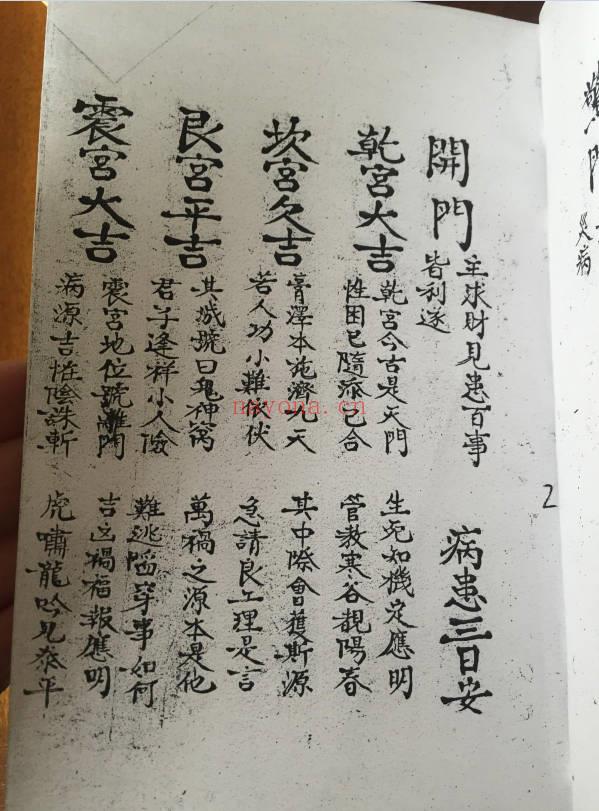 開門
主求財見患百事
皆利遂
病患三日安
乾宮大吉
乾宮今古是天門
生死如機定應明
性困已隨添已合
管教寒谷靚陽春
坎宮欠吉
膏澤本施濟九天
其中際會獲斯源
若人功小難 伏
急請良工理是言
艮宮平吉
其城號曰鬼神窩
萬禍之源本是他
君子逢祥小人儉
難逃陷穽事如何
震宮大吉
震宮地位號離門
吉凶禍福報應明
病源吉怪陰誅斬
虎嘯龍吟見泰平
2
門
災病
nayona.cn